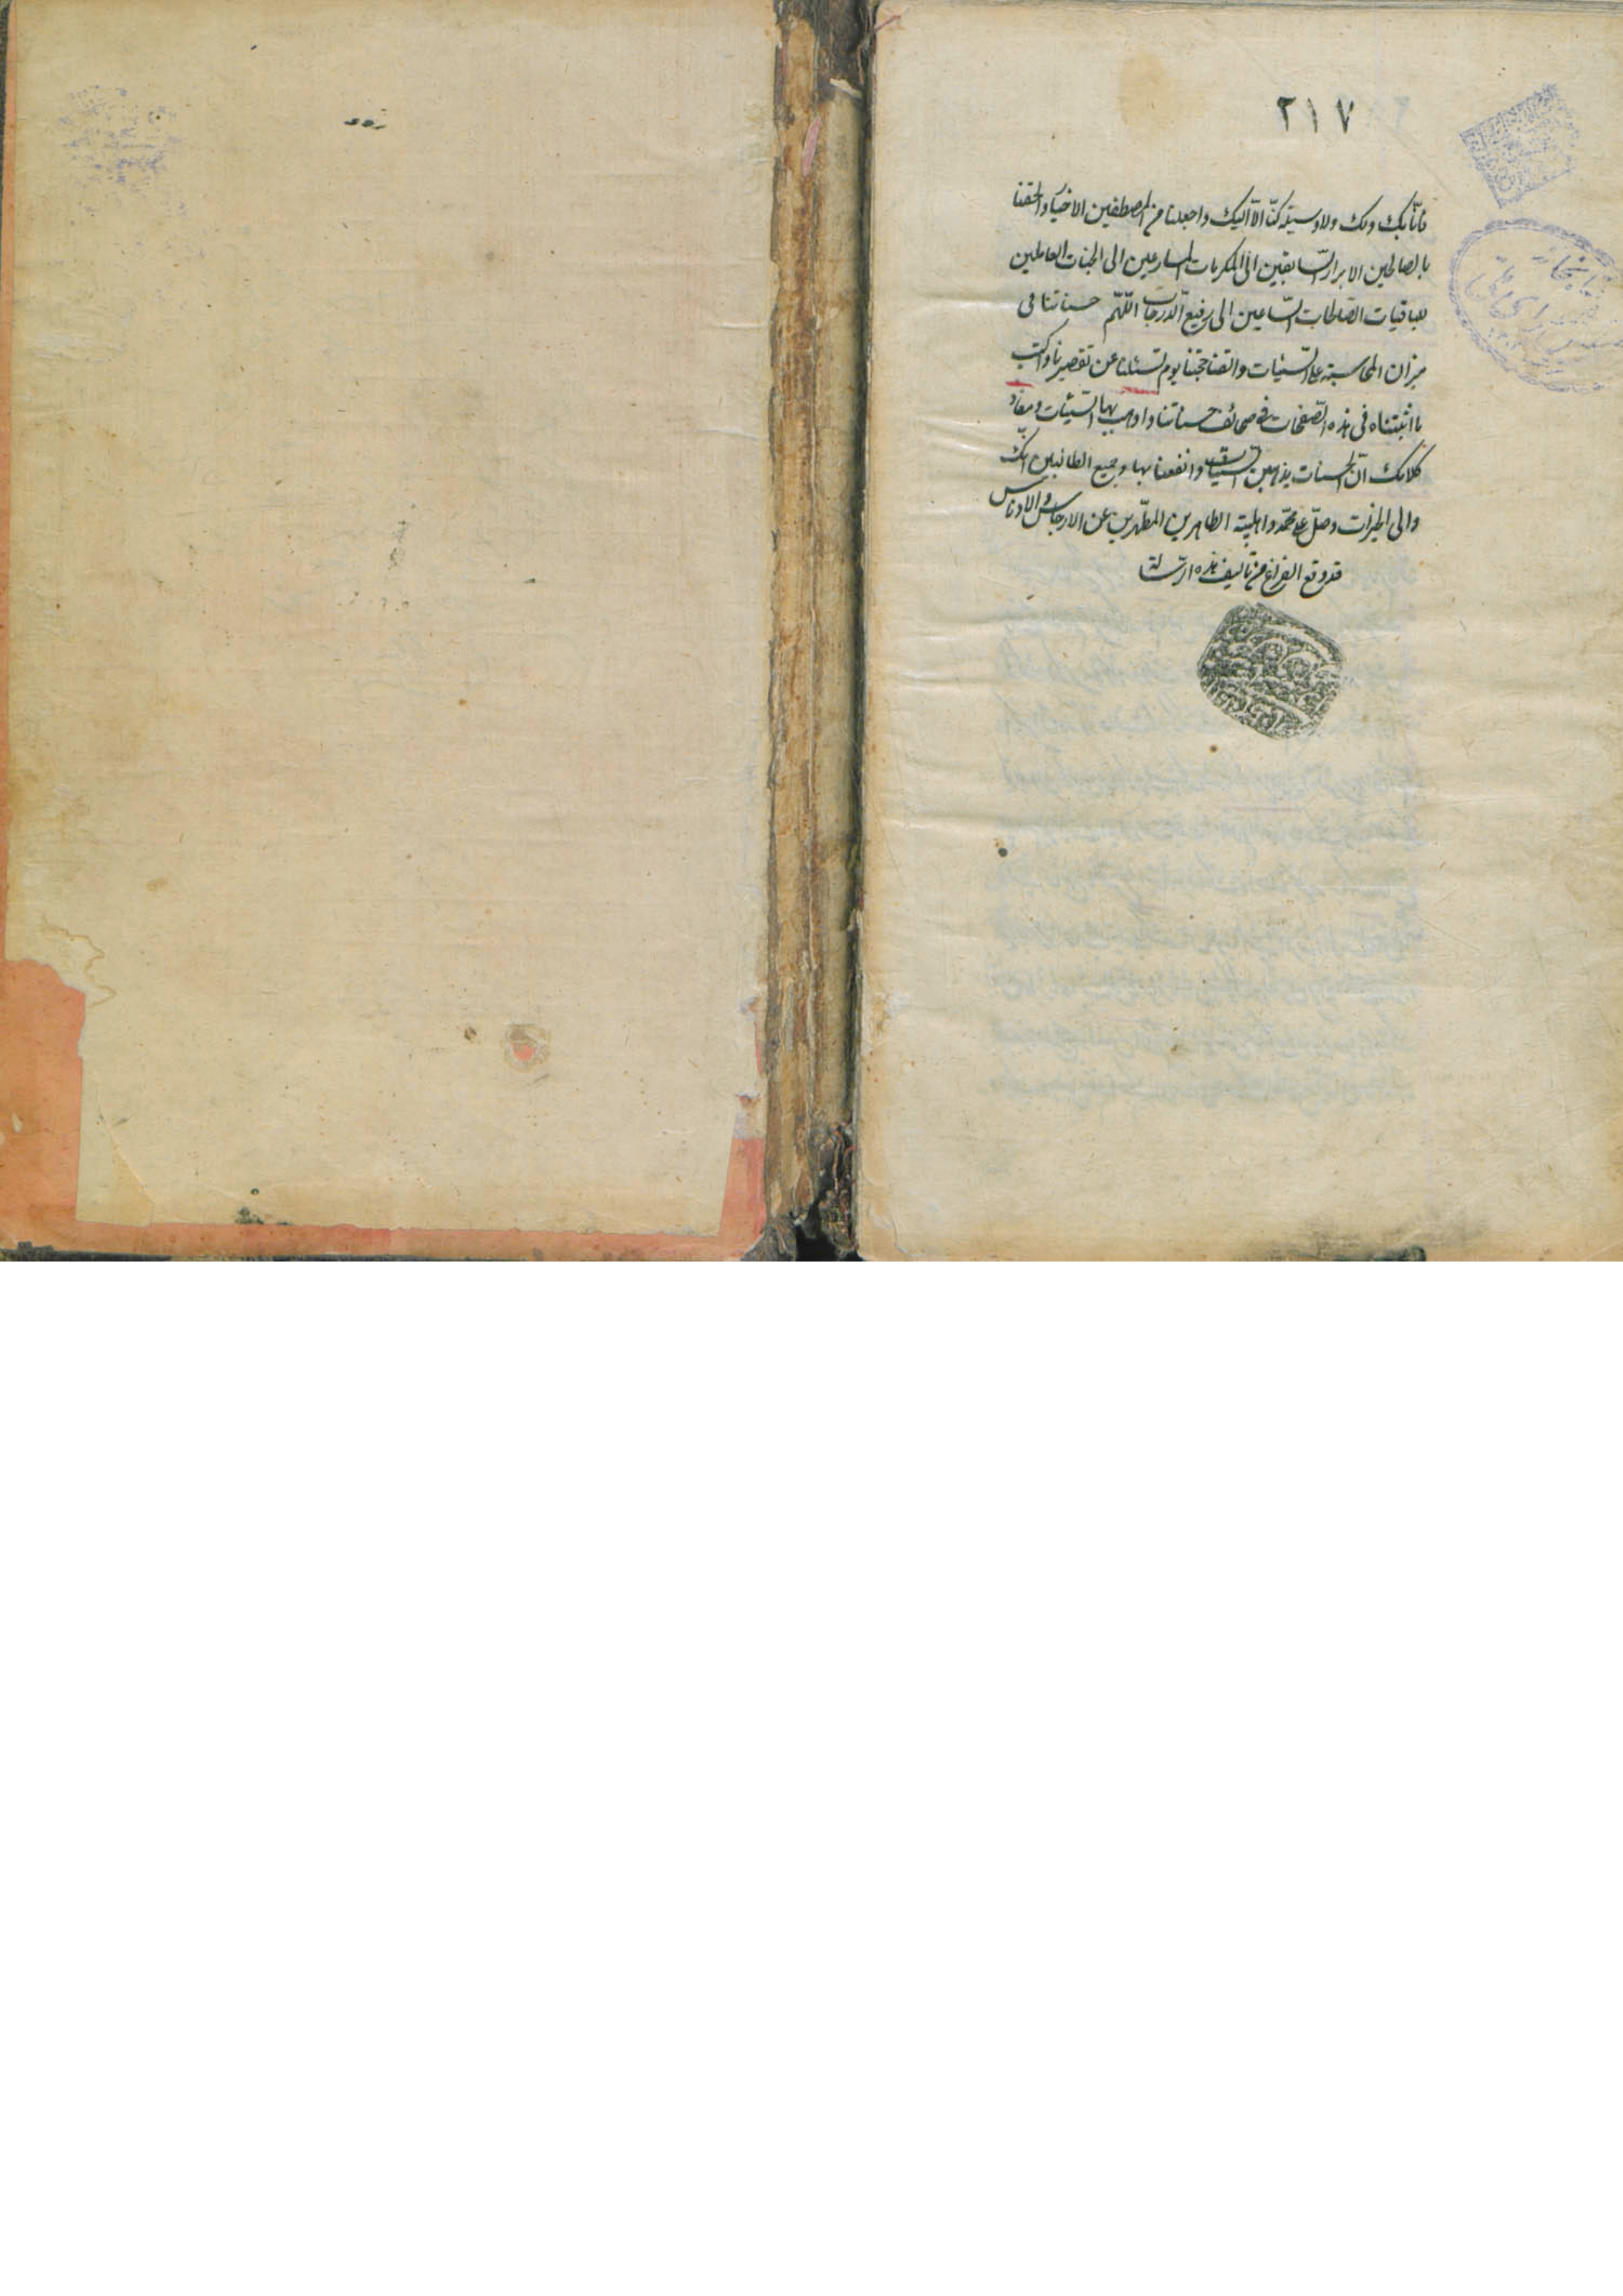 ٢١٧
فانّا بك ولك ولا وسيلة لنا الّا اليك واجعلنا من المصطفين الاخيار والحقنا
بالصالحين الابرار السّابقين الى المكرمات المسارعين الى الجنات العاملين
للباقيات الصّالحات السّاعين الى رفيع الدّرجات اللّهمّ حسناتنا فى
ميزان المحاسبة على السّيّئات والقنا حجّتنا يوم تسئلنا عن تقصيرنا واكتب
ما اثبتناه فى هذه الصّفحات فى صحائف حسناتنا واذهب بها السّيّئات
كلامك انّ الحسنات يذهبن السّيّئات وانفعنا بها وجميع الطالبين انك
والى الخيرات وصلّ على محمّد واهلبيته الطاهرين المطهّرين عن الارجاس والادناس
قد وقع الفراغ من تأليف هذه الرّسالة